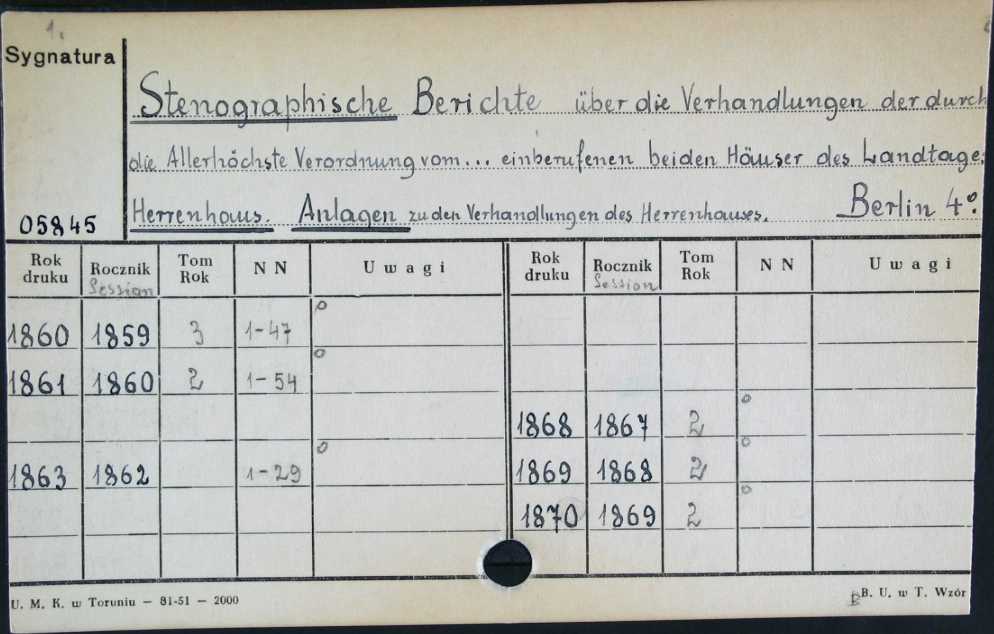 1.
Sygnatura
Stenographische Berichte über die Verhandlungen der durch
die Allerhöchste Verordnung vom... einberufenen beiden Häuser des Landtage.
05845
Herrenhaus. Anlagen zu den Verhandlungen des Herrenhauses. Berlin 4°.
Rok druku Rocznik Session Tom Rok N N Uwagi Rok druku Rocznik Session Tom Rok N N Uwagi
1860 1859 3 1-47 o
1861 1860 2 1-54 o
1868 1867 2 o
1863 1862 1-29 o 1869 1868 2 o
1870 1869 2 o
U. M. K. w Toruniu — 81-51 — 2000 B. U. w T. Wzór